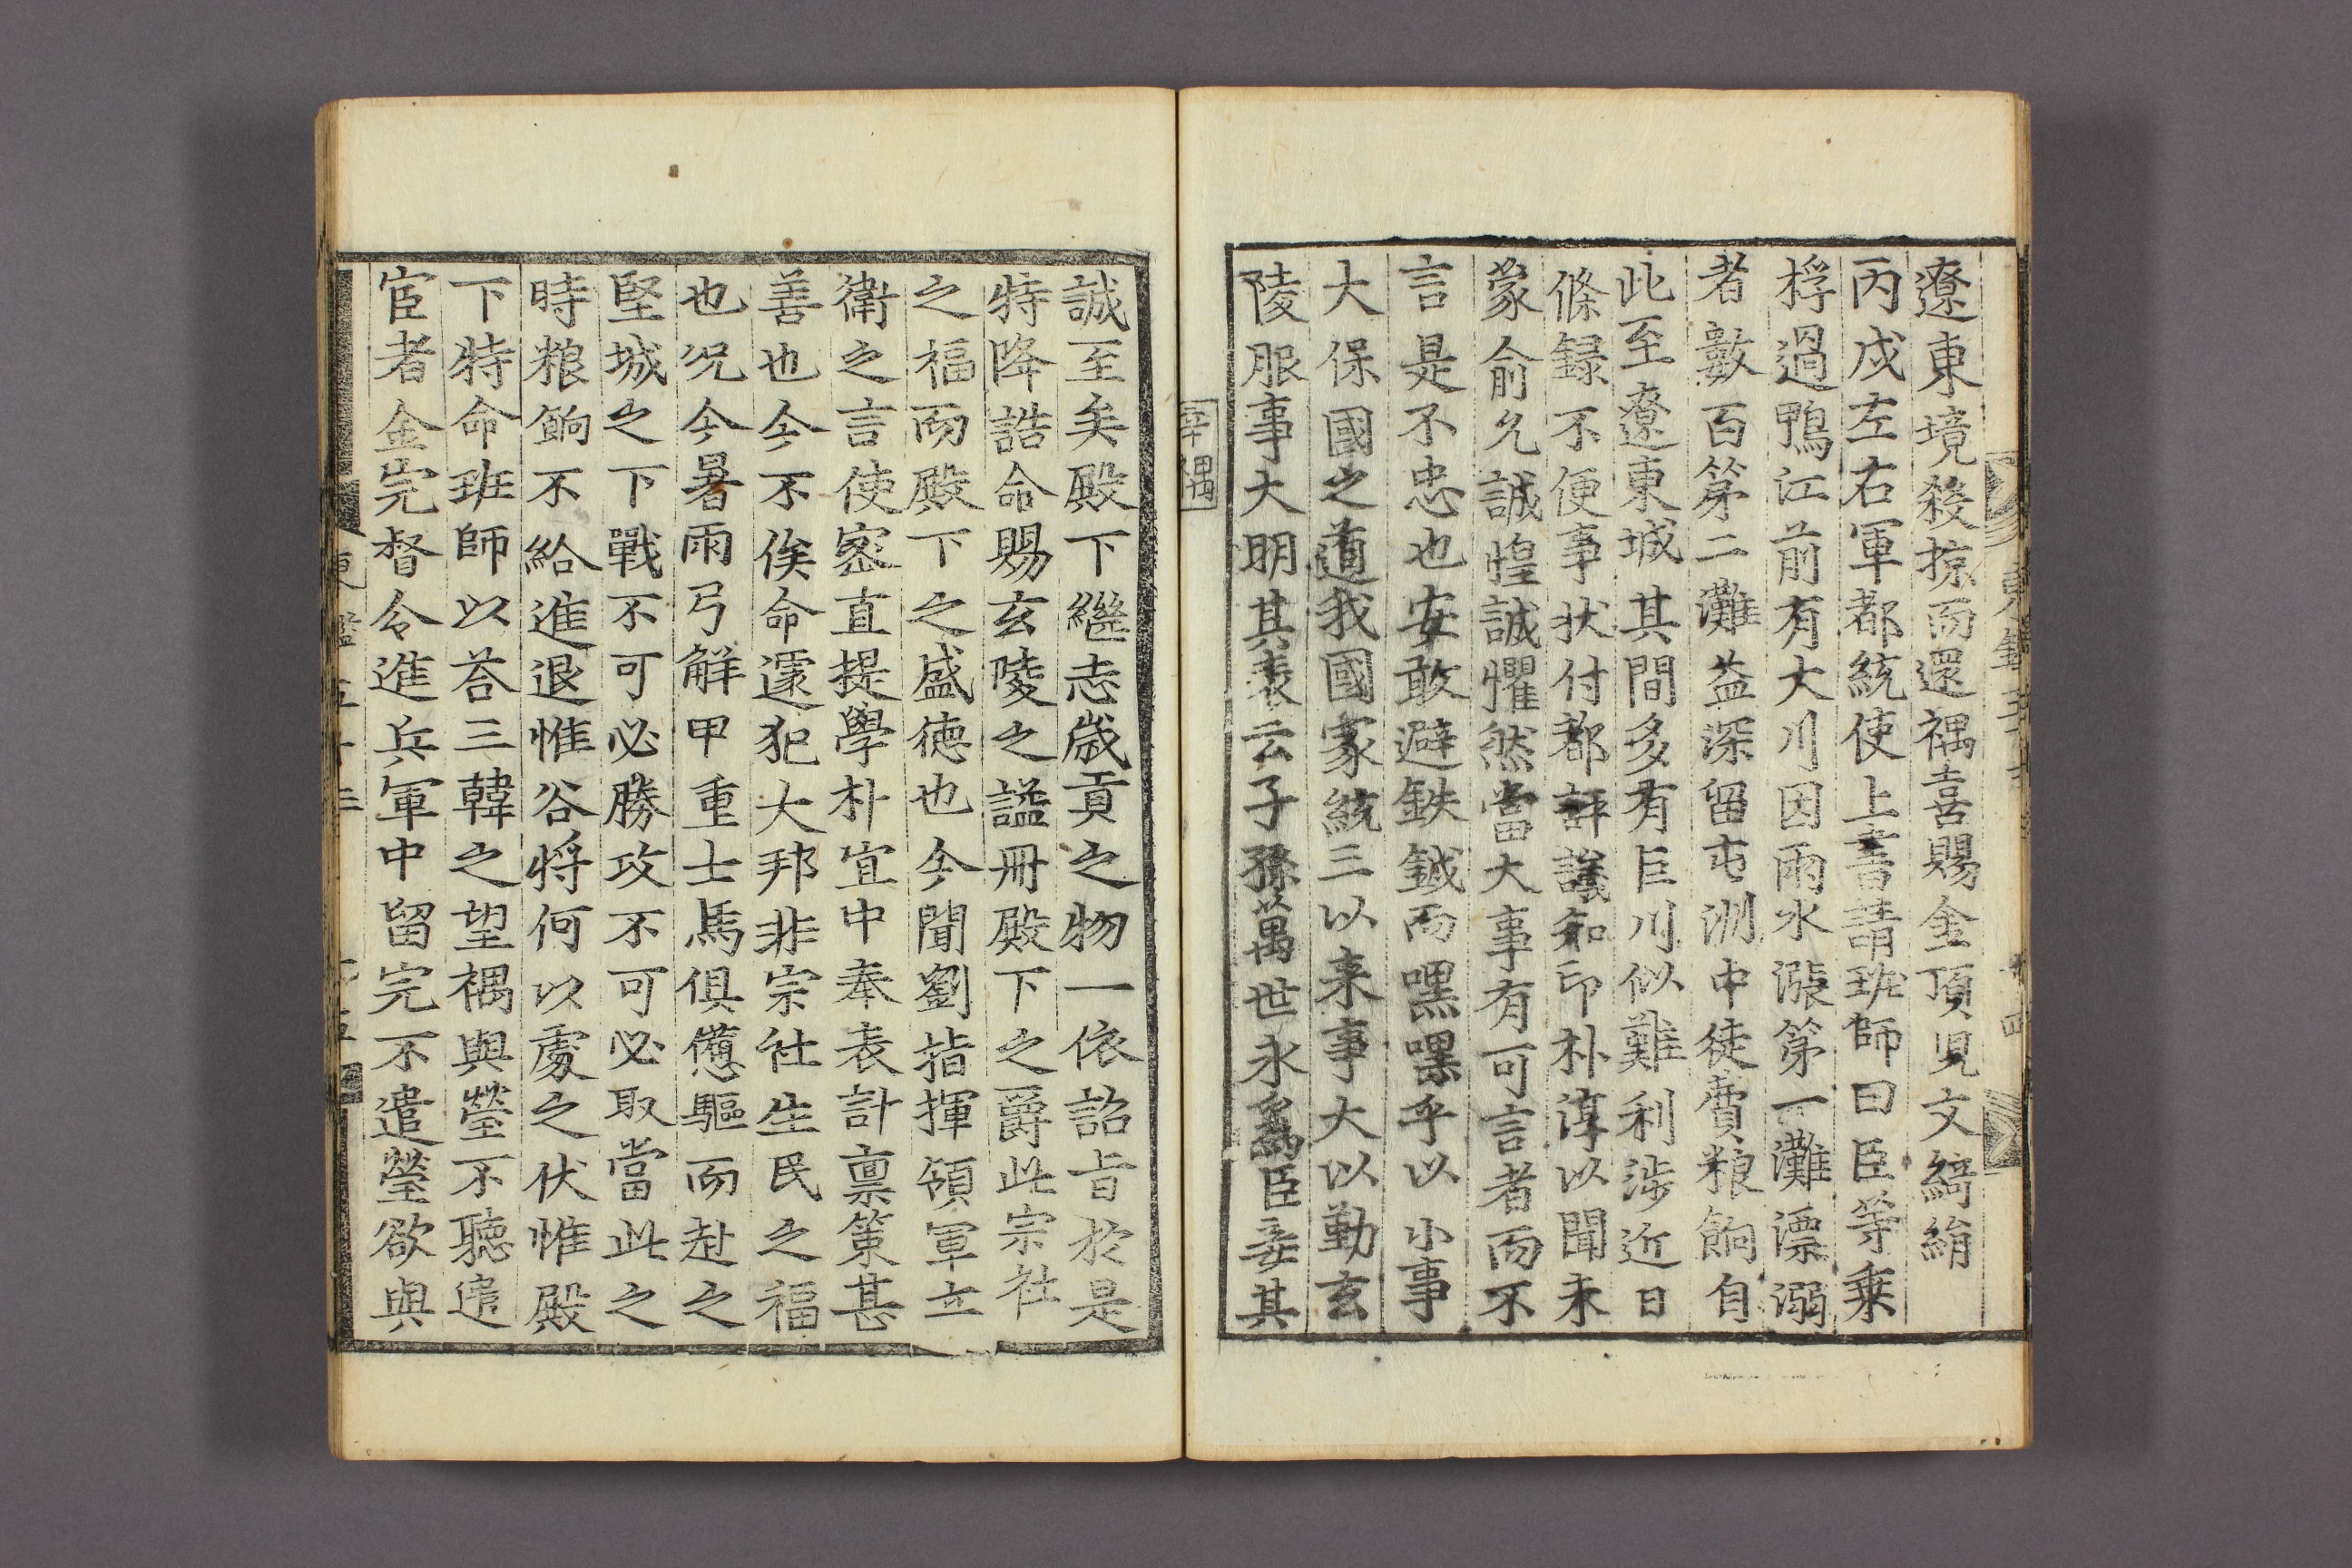 遼東境殺掠而還禑喜賜金頂兒文綺絹
丙戌左右軍都統使上書請班師曰臣等乗
桴過鴨江前有大川因雨水漲第一灘漂溺
者數百第二灘益深留屯洲中徒費粮餉自
此至遼東城其間多有巨川似難利渉近日
條録不便事状付都評議知印朴淳以聞未
蒙俞允誠惶誠懼然當大事有可言者而不
言是不忠也安敢避鈇鉞而嘿嘿乎以小事
大保國之道我國家統三以来事大以勤玄
陵服事大明其表云子孫萬世永爲臣妾其
辛禑
誠至矣殿下継志歳貢之物一依詔旨於是
特降誥命賜玄陵之諡冊殿下之爵此宗社
之福而殿下之盛徳也今聞劉指揮領軍立
衛之言使宻直提學朴宜中奉表計禀策甚
善也今不俟命遽犯大邦非宗社生民之福
也况今暑雨弓解甲重士馬俱憊驅而赴之
堅城之下戰不可必勝攻不可必取當此之
時粮餉不給進退惟谷将何以處之伏惟殿
下特命班師以荅三韓之望禑與瑩不聽遣
宦者金完督令進兵軍中留完不遣瑩欲與